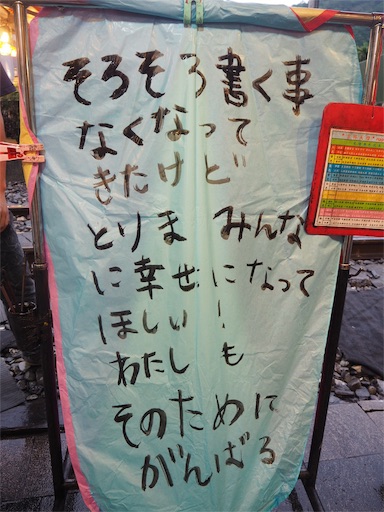 そろそろ書く事
なくなって
きたけど
とりま みんな
に幸せになって
ほしい!
わたしも
そのために
がんばる